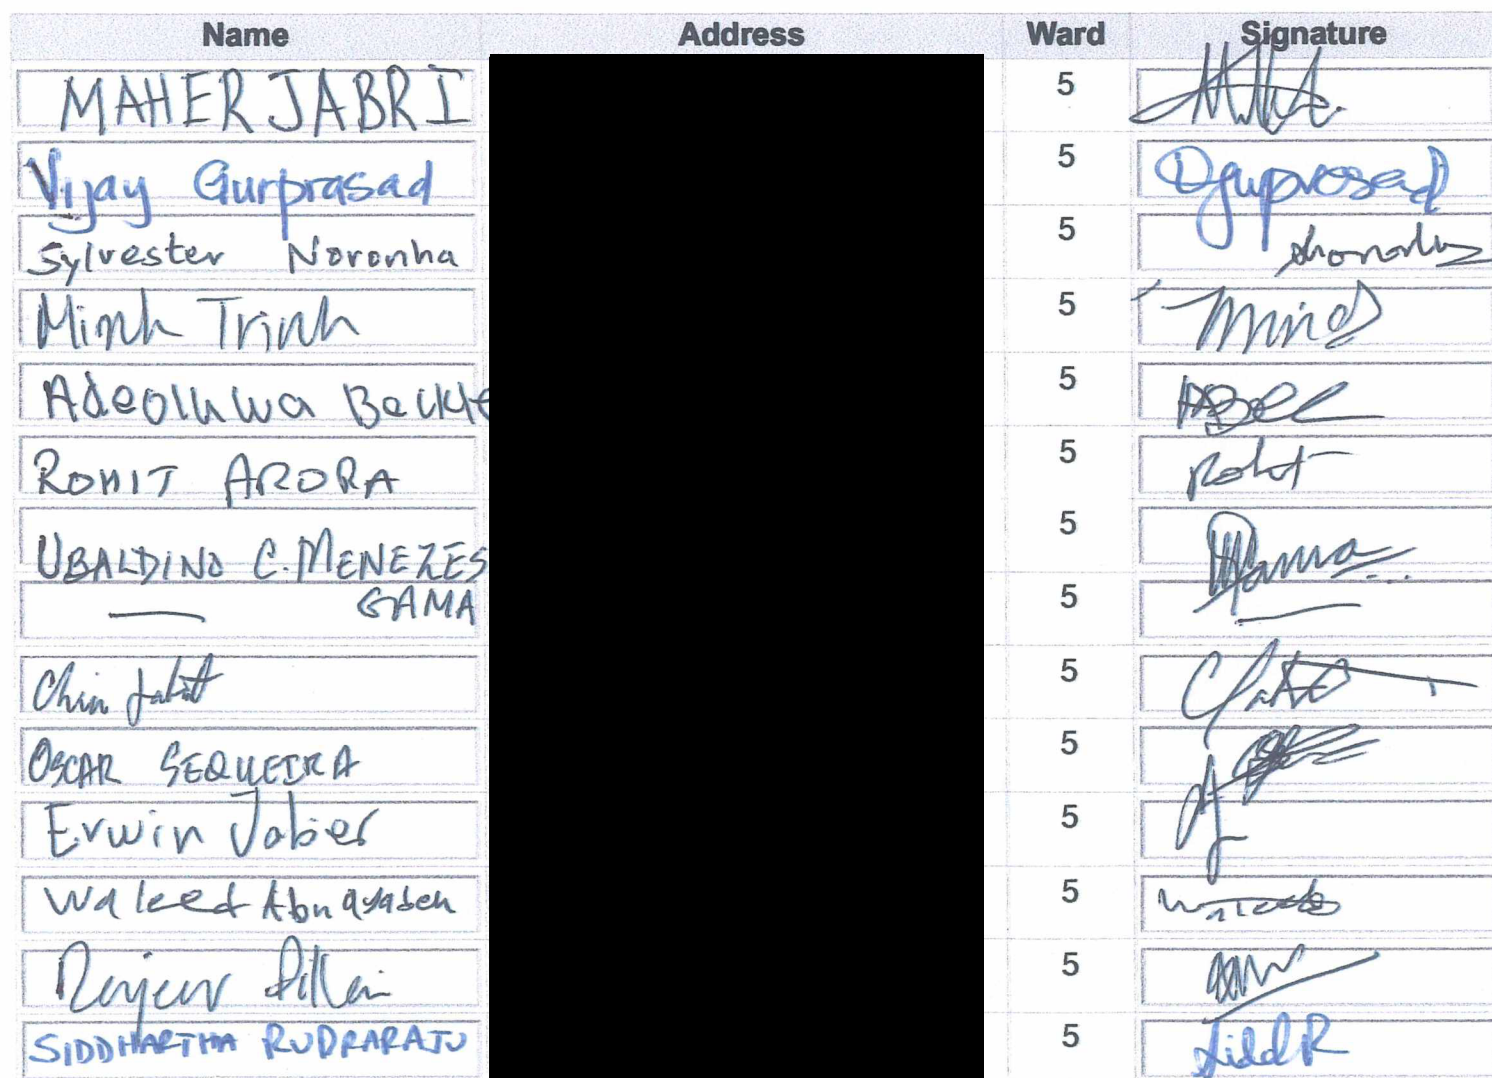 Name Address Ward Signature
MAHER JABRI 5
Vijay Gurprasad 5 Dguprosad
Sylvester Noronha 5
Minh Trinh 5
Adeoluwa 5
ROHIT ARORA 5 Rohit
UBALDINO C. MENEZES 5
GAMA 5
Chin 5
OSCAR SEQUEIRA 5
Erwin Jabier 5
Waleed 5
Rajeev Pillai 5
SIDDHARTHA RUDRARAJU 5 Sidd R